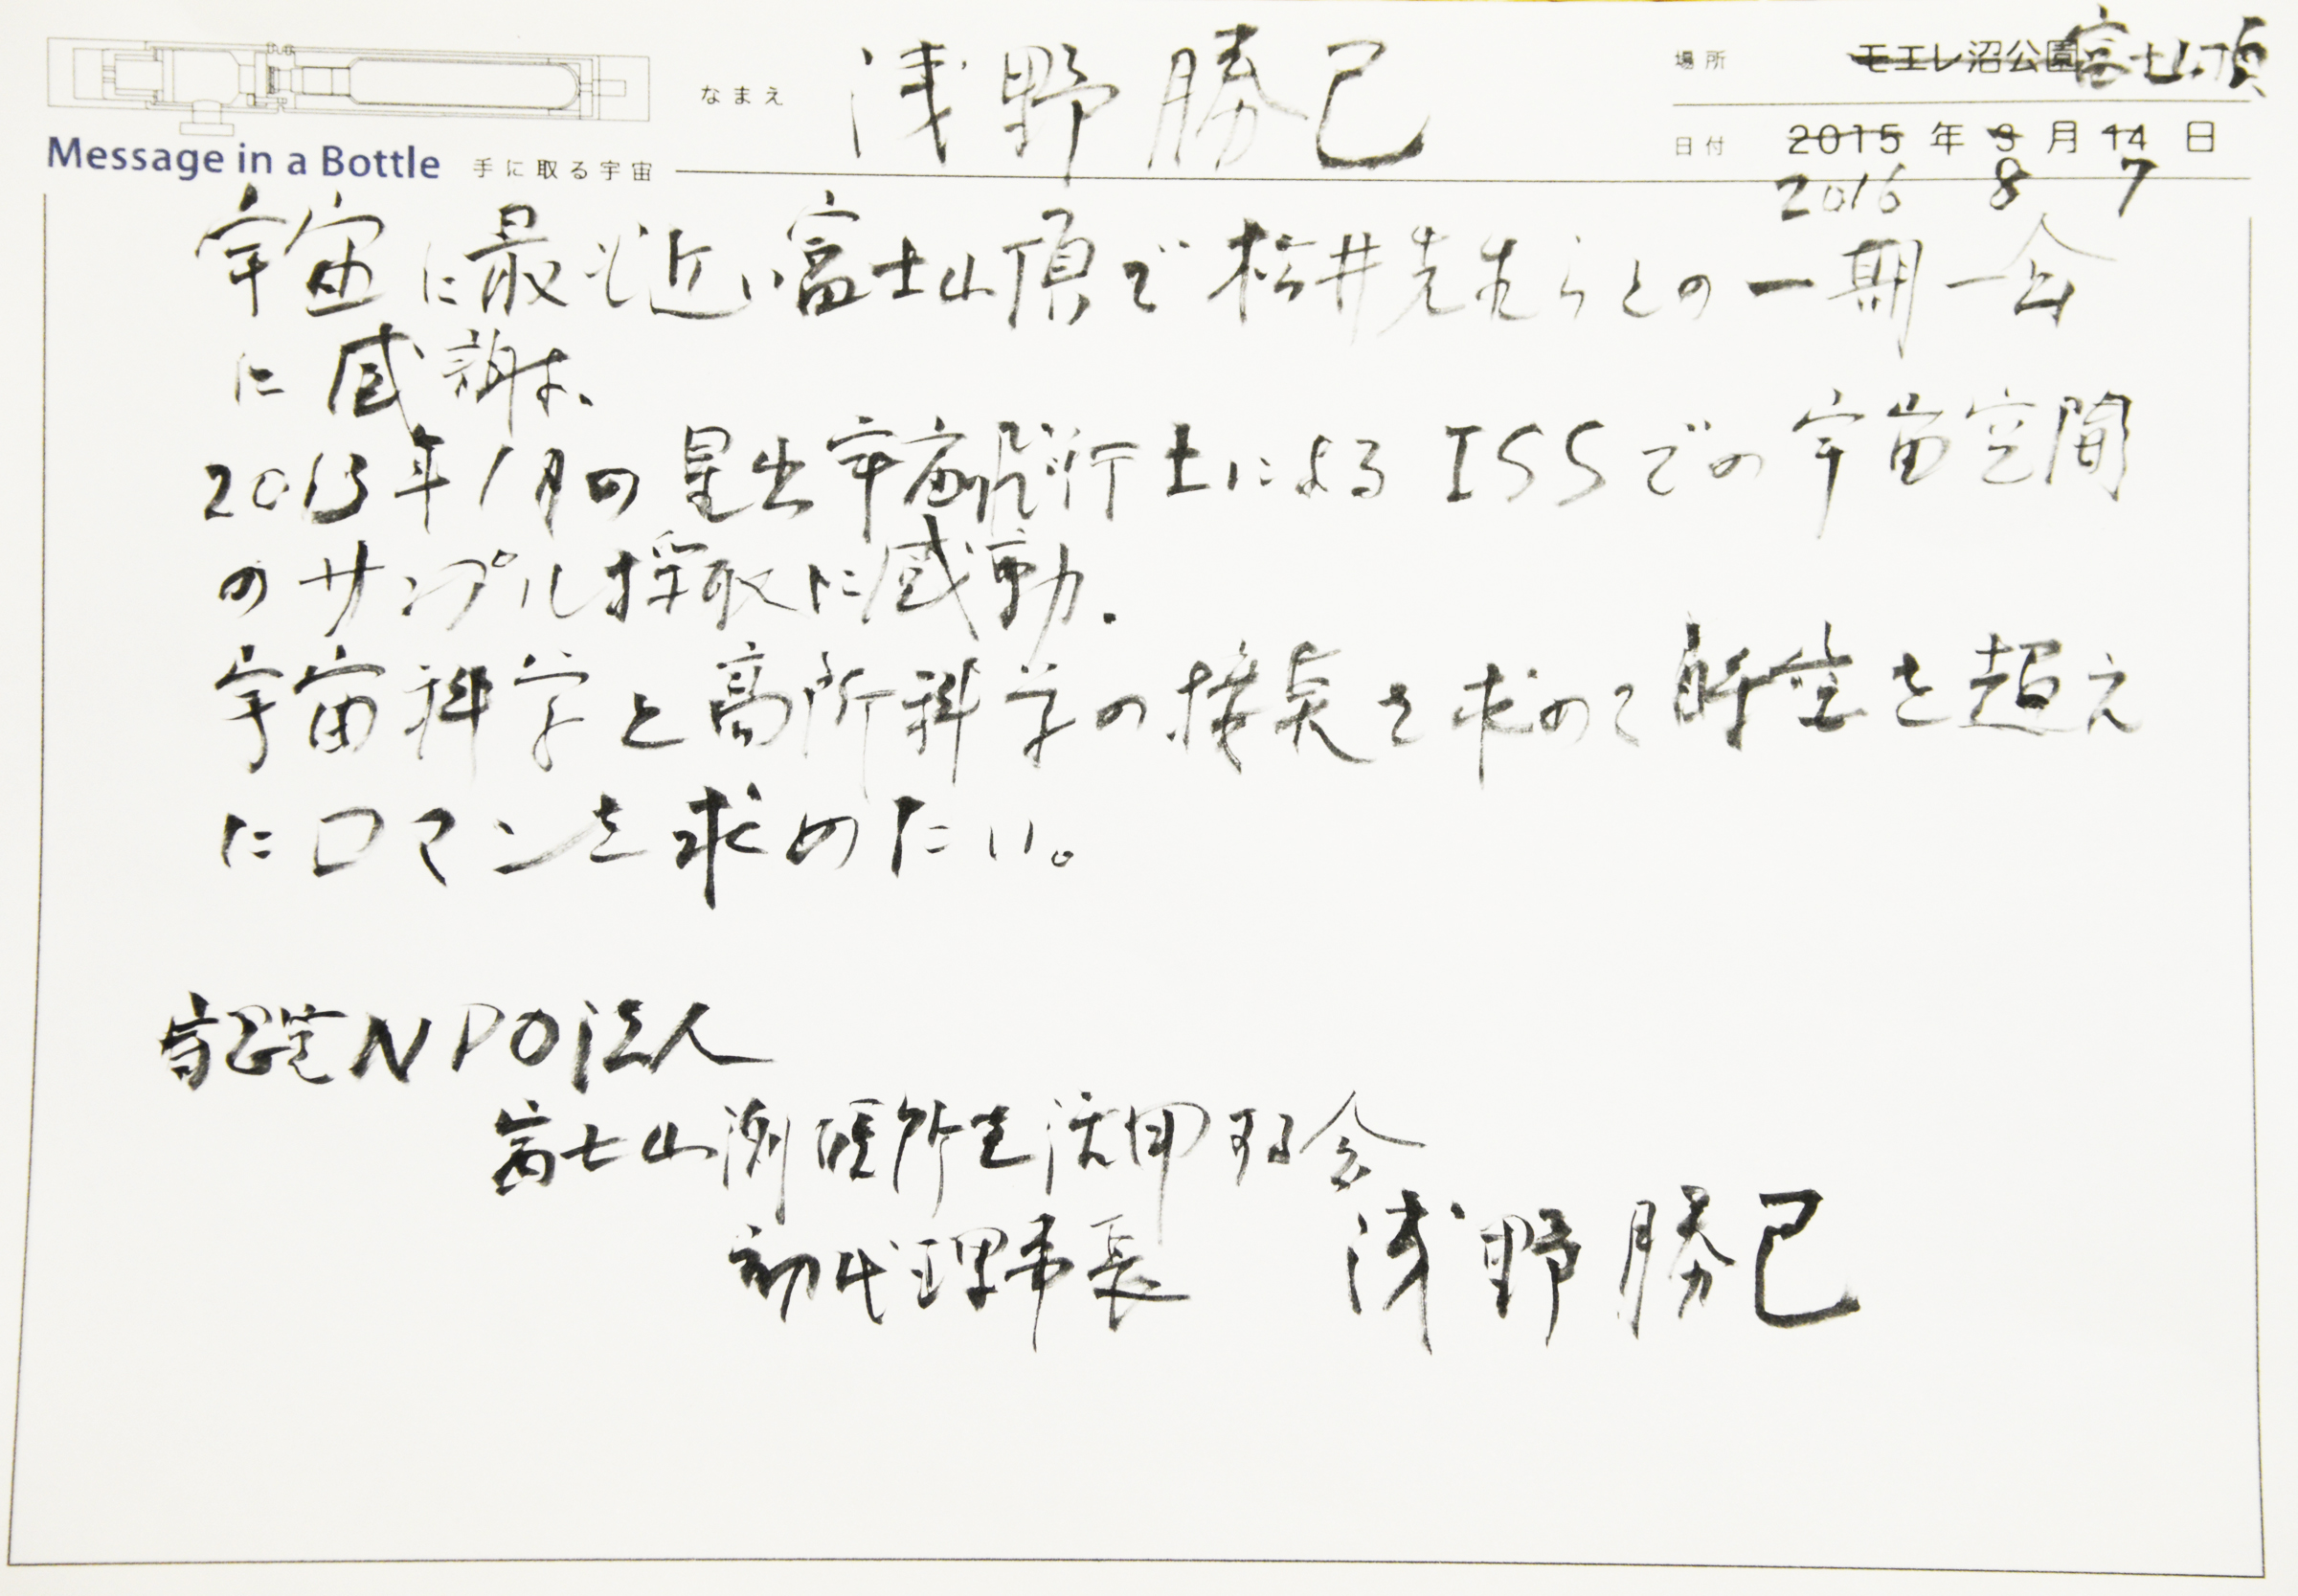 なまえ 浅野勝己
場所 モエレ沼公園 富士山頂
Message in a Bottle 手に取る宇宙
日付 2015年9月14日
2016 8 7
宇宙に最も近い富士山頂で松井先生らとの一期一会
に感謝。
2013年1月の星出宇宙飛行士によるISSでの宇宙空間
のサンプル採取に感動.
宇宙科学と高所科学の接点を求めて時空を超え
にロマンを求めたい。
認定NPO法人
富士山測候所を活用する会
初代理事長 浅野勝己